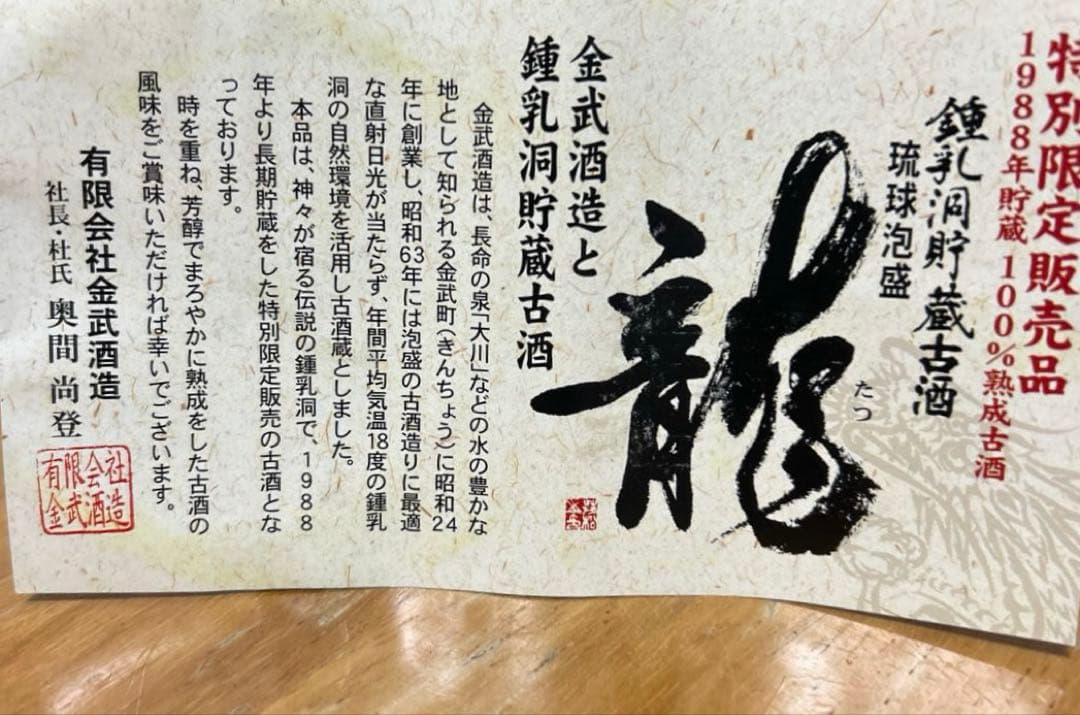 特別限定販売品
1988年貯蔵 100%熟成古酒
鍾乳洞貯蔵古酒
琉球泡盛
龍
たつ
金武酒造と
鍾乳洞貯蔵古酒
金武酒造は、長命の泉「大川」などの水の豊かな
地として知られる金武町(きんちょう)に昭和24
年に創業し、昭和63年には泡盛の古酒造りに最適
な直射日光が当たらず、年間平均気温18度の鍾乳
洞の自然環境を活用し古酒蔵としました。
本品は、神々が宿る伝説の鍾乳洞で、1988
年より長期貯蔵をした特別限定販売の古酒とな
っております。
時を重ね、芳醇でまろやかに熟成をした古酒の
風味をご賞味いただければ幸いでございます。
有限会社金武酒造
社長・杜氏 奥間尚登
有限会社
金武酒造